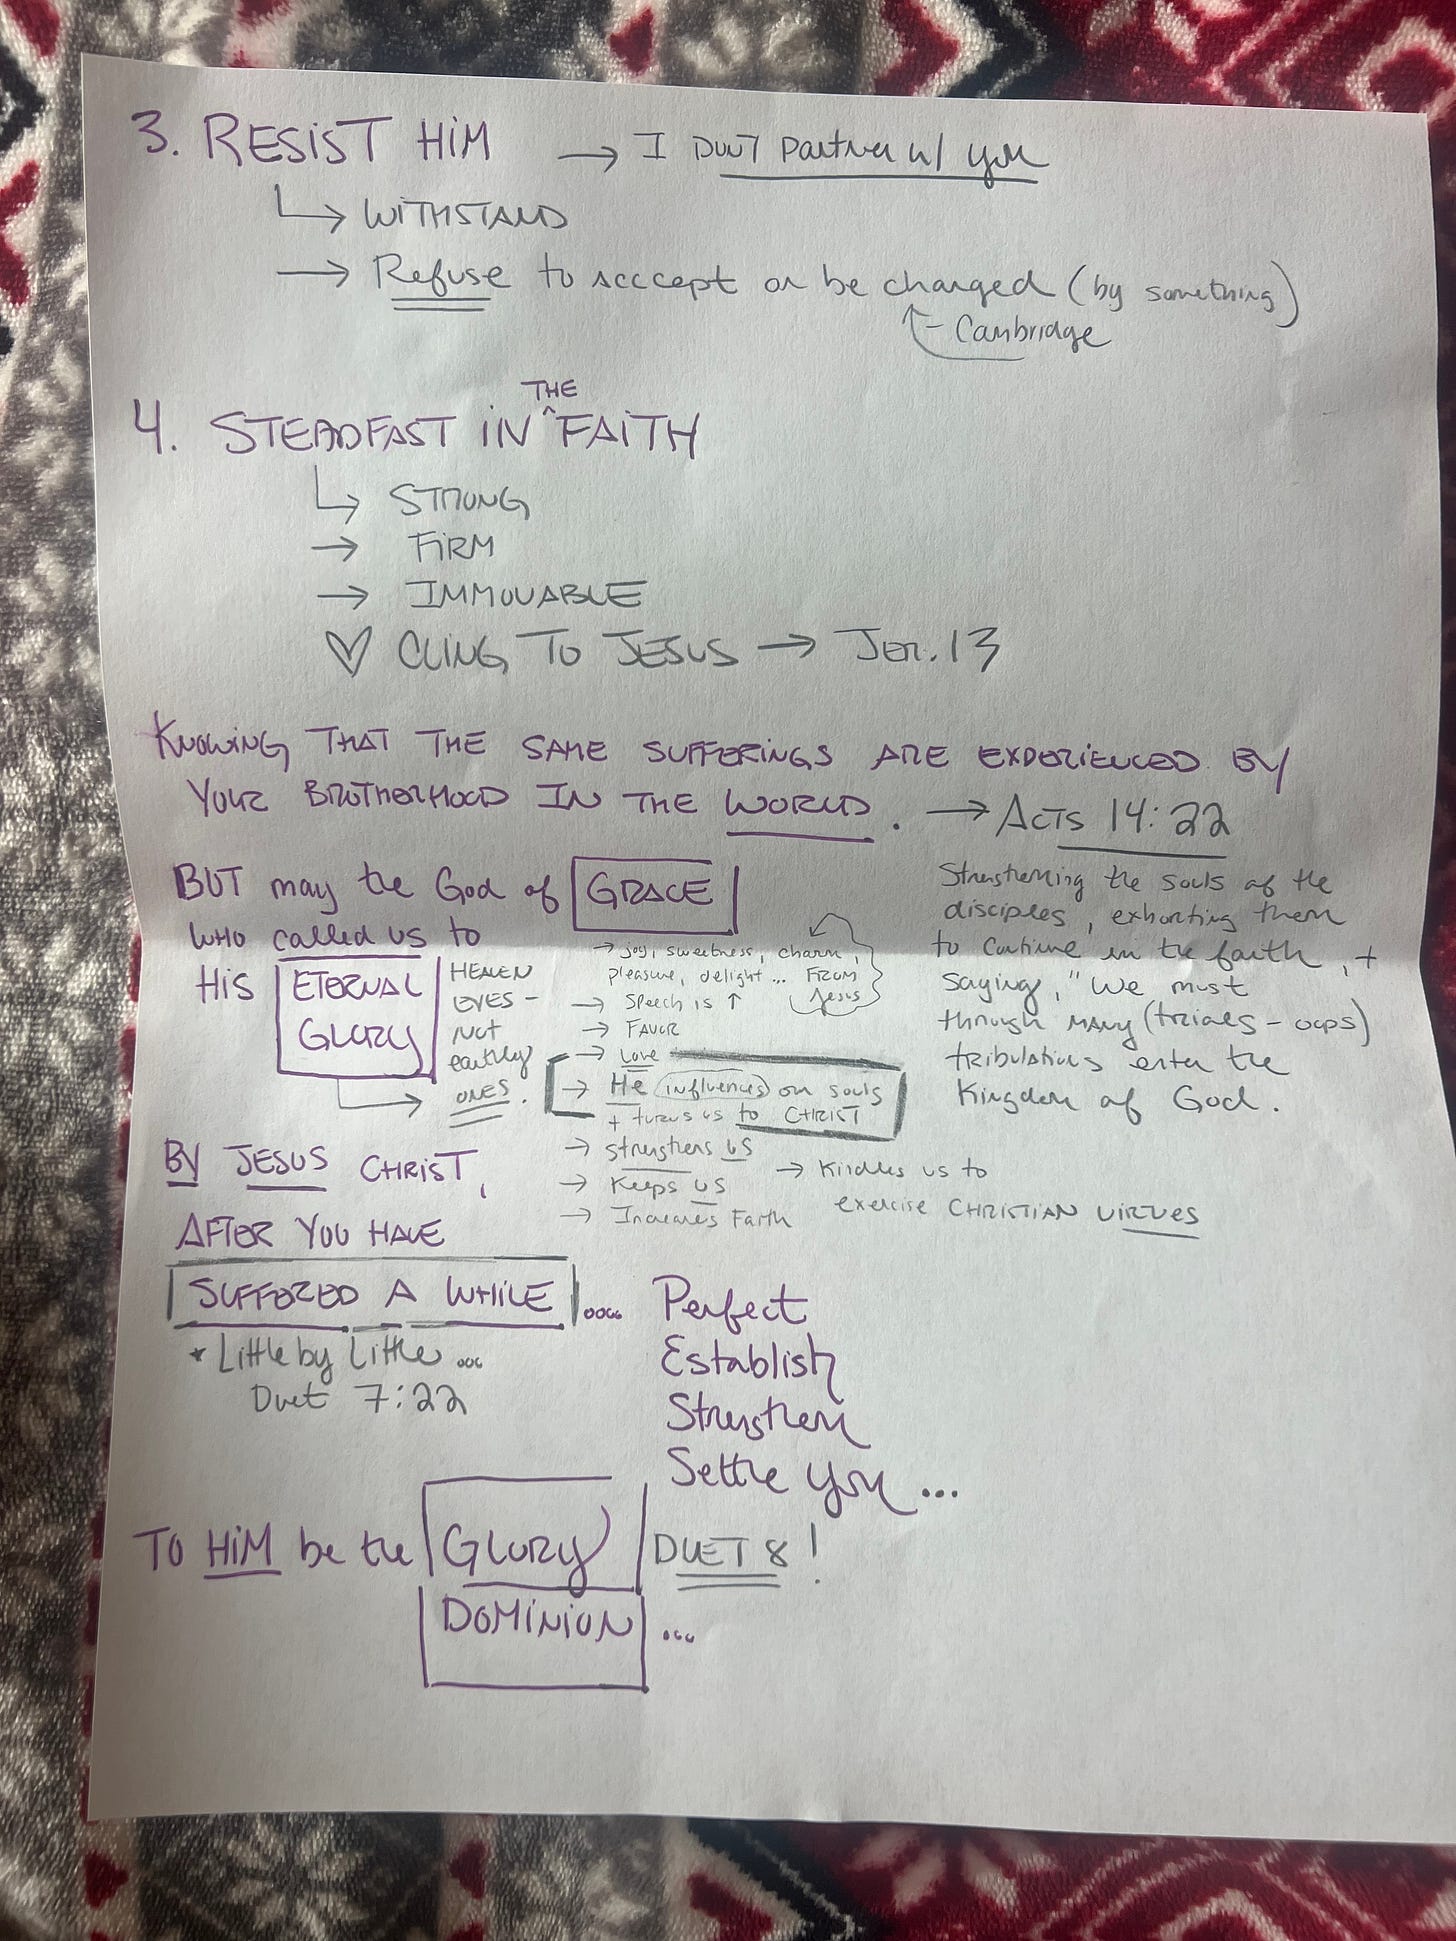 3. RESIST HIM → I DON'T partner w/ you
↳ WITHSTAND
→ Refuse to acccept or be changed (by something)
↑- Cambridge
THE
4. STEADFAST IN ^ FAITH
↳ STRONG
→ FIRM
→ IMMOVABLE
♡ CLING TO JESUS → JER. 13
KNOWING THAT THE SAME SUFFERINGS ARE EXPERIENCED BY
YOUR BROTHERHOOD IN THE WORLD. → ACTS 14:22
BUT may the God of GRACE
WHO called us to
HIS ETERNAL
GLORY
HEAVEN
EYES -
NOT
earthly
ONES.
→ joy, sweetness, charm,
pleasure, delight... FROM
Jesus
→ Speech is ↑
→ FAVOR
→ Love
→ He influences on souls
+ turns us to CHRIST
→ strengthens US
→ Keeps US
→ Increases Faith
→ Kindles us to
exercise CHRISTIAN VIRTUES
Strengthening the souls of the
disciples, exhorting them
to continue in the faith, +
saying, "We must
through MANY (trials - oops)
tribulations enter the
Kingdom of God.
BY JESUS CHRIST,
AFTER YOU HAVE
SUFFERED A WHILE ....
* Little by Little ...
Duet 7:22
Perfect
Establish
Strengthen
Settle you ...
TO HIM be the GLORY DUET 8!
DOMINION ...